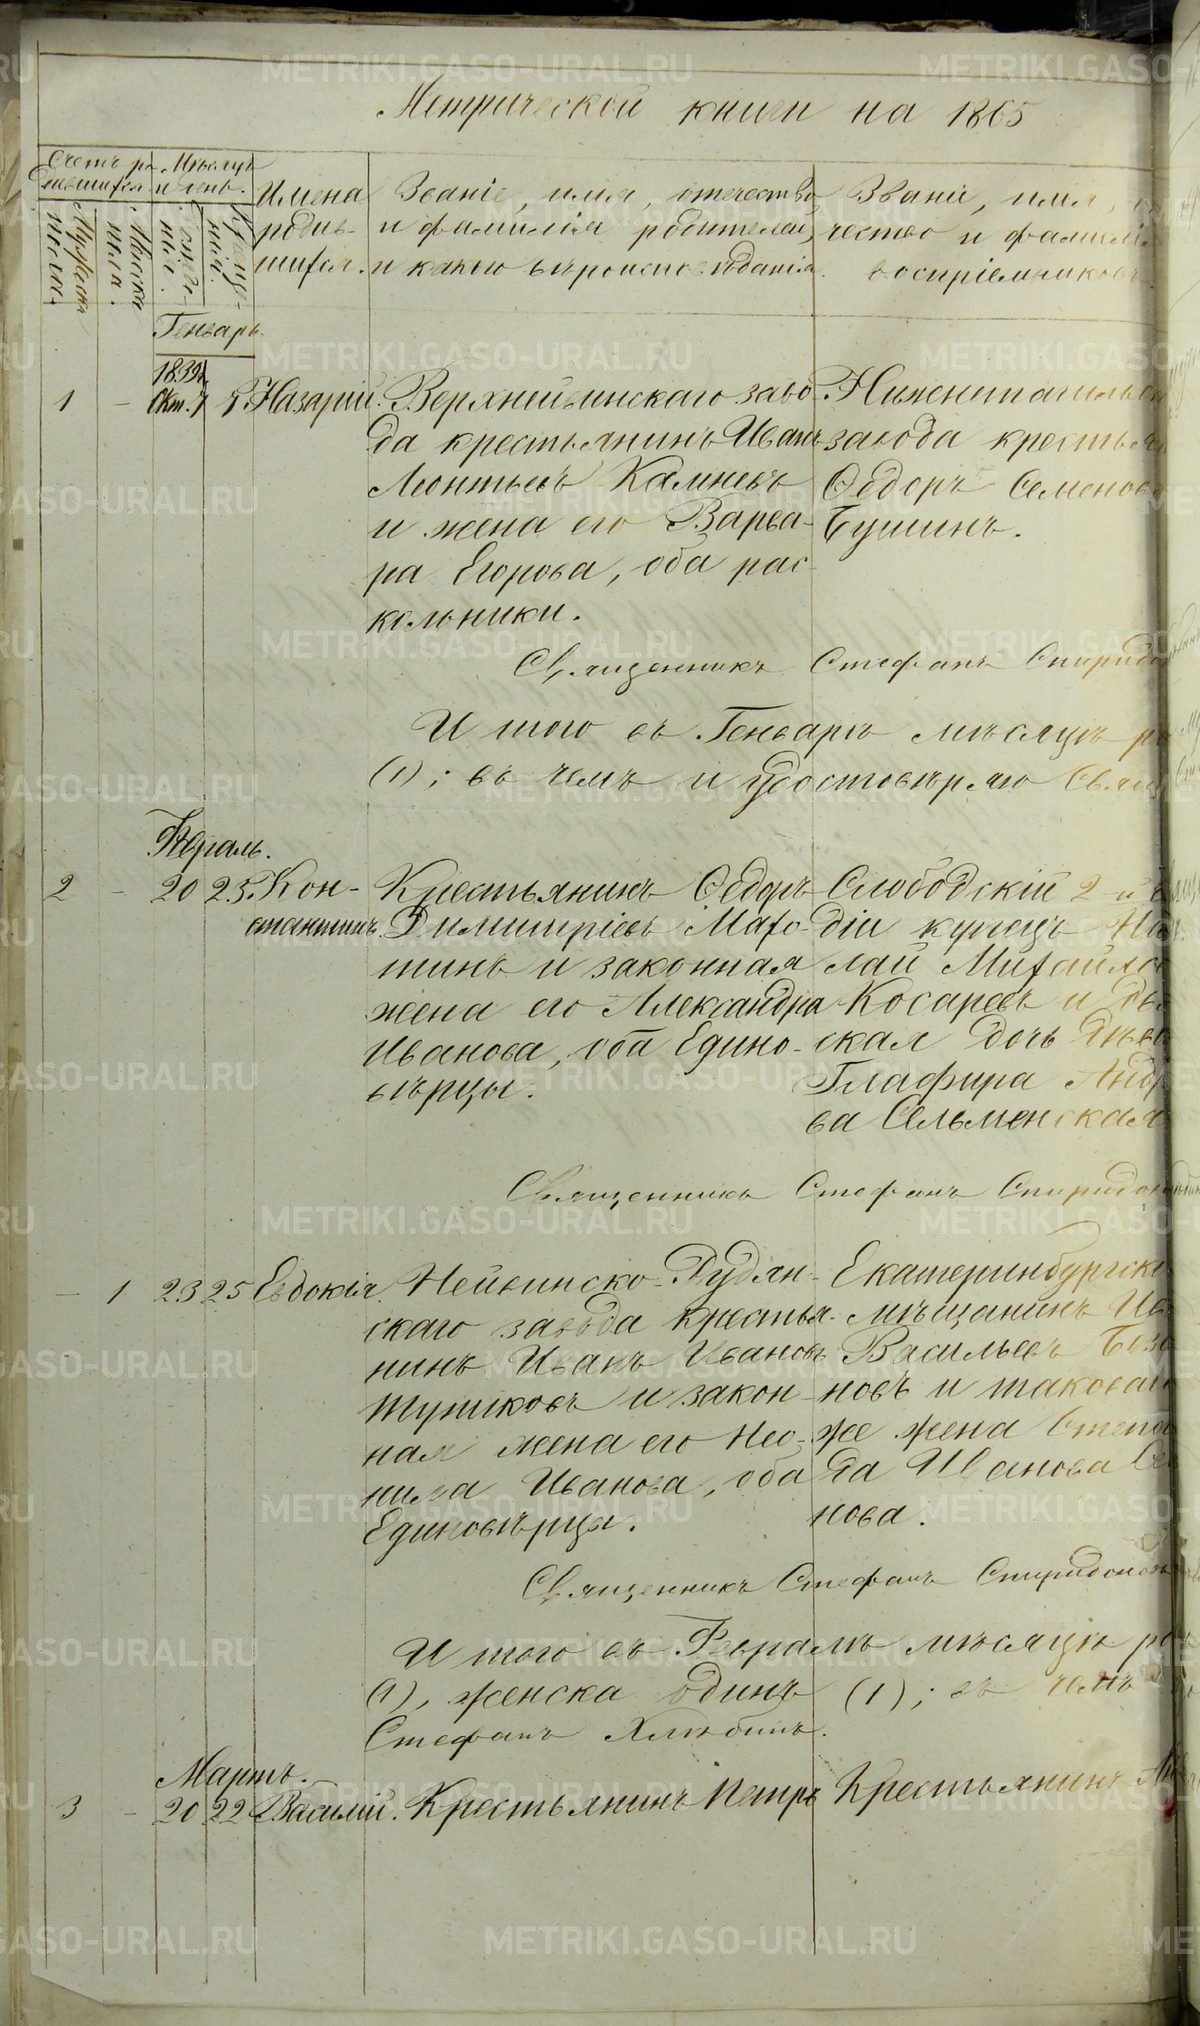 Метрической книги на 1865
Счетъ ро-
дившихся.
Мужеска пола.
Женска пола.
Мѣсяцъ
и день.
Рожде-
нія.
Креще-
нія.
Имена
родив-
шихся.
Званіе, имя, отечество,
и фамилія родителей,
и какого вѣроисповѣданія.
Званіе, имя,
чество и фамилія
воспріемниковъ
Генварь.
1839
1 - Окт. 7 Назарій.
Верхнейвинскаго заво-
да крестьянинъ Иванъ
Леонтьевъ Камневъ
и жена его Варва-
ра Егорова, оба рас-
кольники.
Нижнетагильск
завода крестья
Ѳедоръ Семеновъ
Бушинъ.
Священникъ Стефанъ Спиридо
И того въ Генварѣ мѣсяцѣ ро
(1); въ чемъ и удостовѣряю Свящ
Февраль.
2 - 20 25. Кон-
стантинъ.
Крестьянинъ Ѳедоръ
Димитріевъ Махо-
тинъ и законная
жена его Александра
Иванова, оба Едино-
вѣрцы.
Слободскій 2-й
діи купецъ Ни
лай Михайлов
Косаревъ и дья
ская дочь Дѣви
Глафира Андр
ва Сельменская
Священникъ Стефанъ Спиридон
- 1 23 25 Евдокія.
Нейвинско-Рудян-
скаго завода крестья-
нинъ Иванъ Ивановъ
и закон-
ная жена его Нео-
нила Иванова, оба
Единовѣрцы.
Екатеринбургскі
мѣщанинъ Ив
Васильевъ
новъ и таковаго
же жена Степа
да Иванова
нова.
Священникъ Стефанъ Спиридоновъ
И того въ Февралѣ мѣсяцѣ ро
(1), женска одинъ (1); въ чемъ
Стефанъ Хлюбинъ.
Мартъ.
3 - 20 22 Василій.
Крестьянинъ Петръ
Крестьянинъ
METRIKI.GASO-URAL.RU